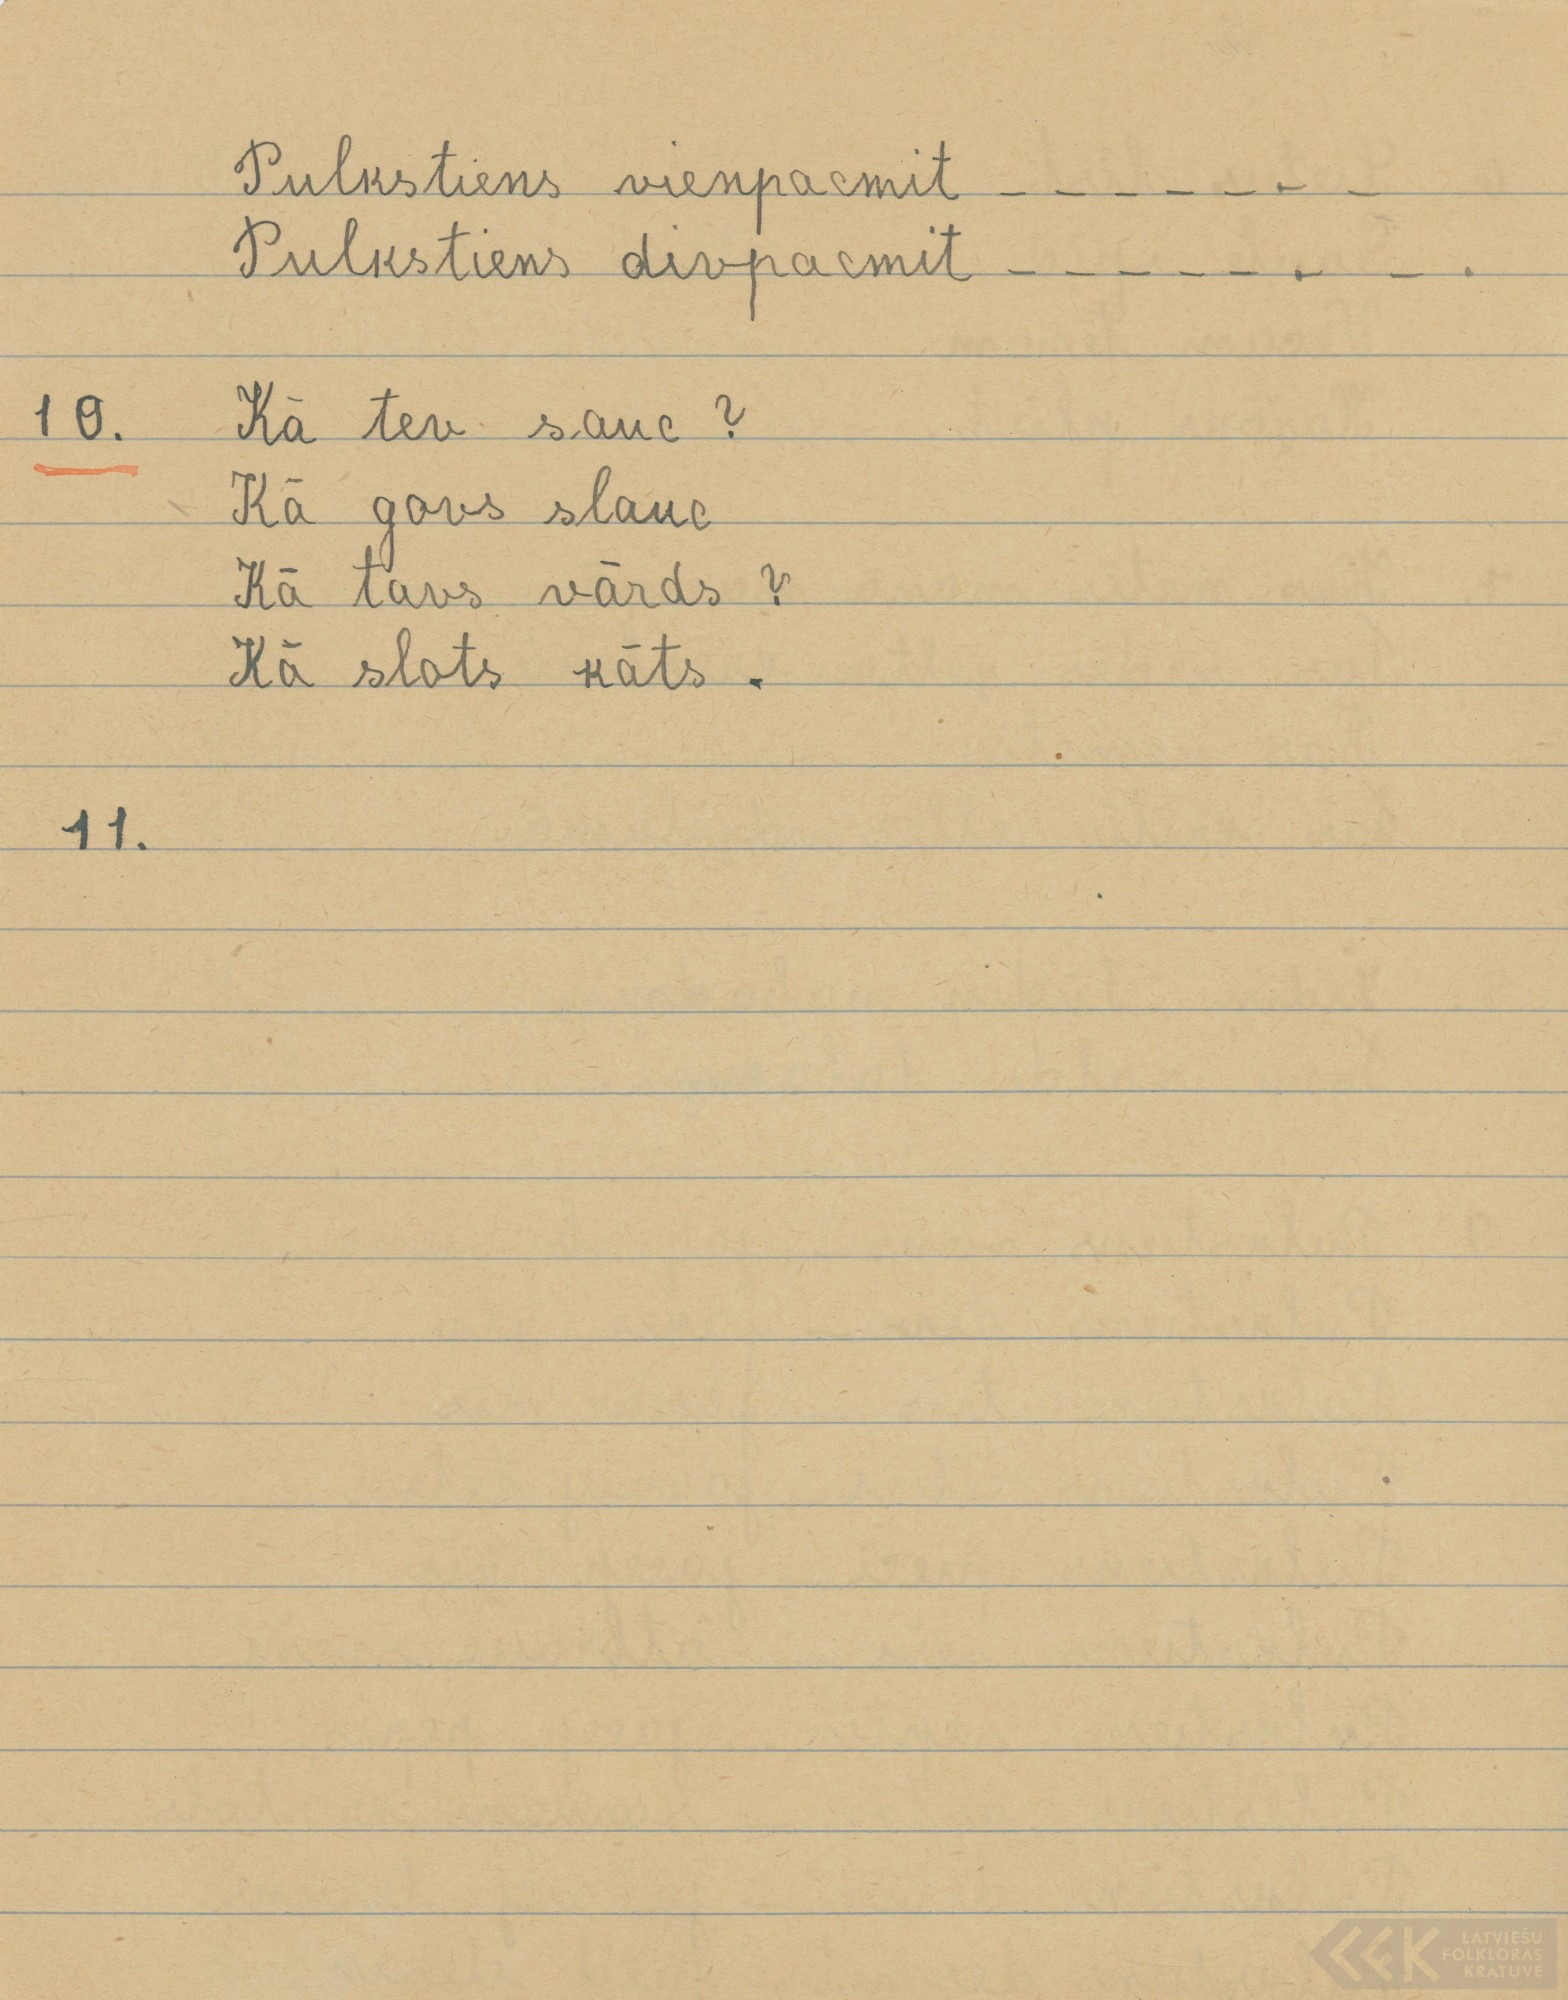 Pulkstiens vienpacmit _ _ _ _ _ _ _
Pulkstiens divpacmit _ _ _ _ _ _ _ .
10. Kā tev sauc ?
Kā govs slauc
Kā tavs vārds ?
Kā slots kāts .
11.
LATVIEŠU
FOLKLORAS
KRĀTUVE